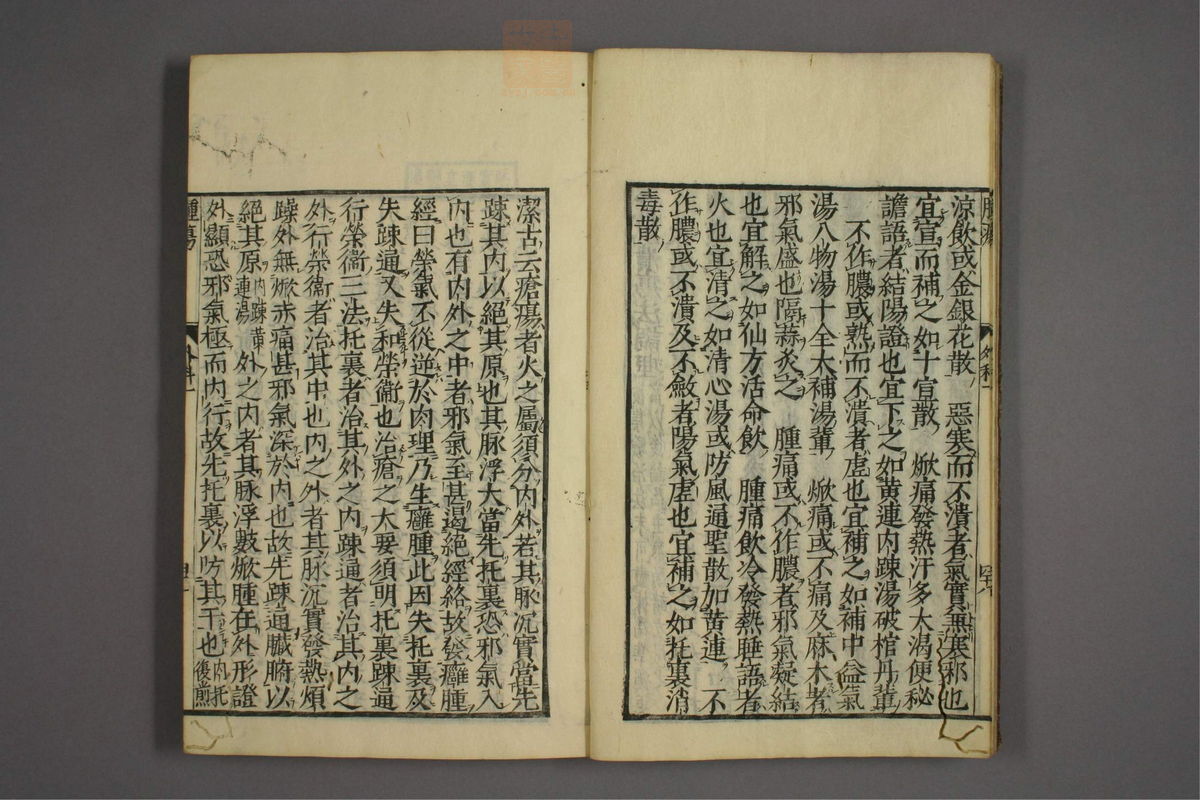 涼飲或金銀花散　惡寒而不潰者氣實兼寒邪也
宜宣而補之如十宣散　焮痛發熱汗多大渴便秘
譫語者結陽證也宜下之如黃連內踈湯破棺丹輩
不作膿或熟而不潰者虛也宜補之如補中益氣
湯八物湯十全大補湯輩　焮痛或不痛及麻木者
邪氣盛也隔蒜灸之　腫痛或不作膿者邪氣凝結
也宜解之如仙方活命飲　腫痛飲冷發熱睡語者
火也宜清之如清心湯或防風通聖散加黃連　不
作膿或不潰及不斂者陽氣虛也宜補之如托裏消
毒散
潔古云瘡瘍者火之屬須分內外若其脉沉實當先
踈其內以絕其原也其脉浮大當先托裏恐邪氣入
內也有內外之中者邪氣至甚遏絕經絡故發癰腫
經曰榮氣不從逆於肉理乃生癰腫此因失托裏及
失踈通又失和榮衞也治瘡之大要須明托裏踈通
行榮衞三法托裏者治其外之內踈通者治其內之
外行榮衞者治其中也內之外者其脉沉實發熱煩
躁外無焮赤痛甚邪氣深於內也故先踈通臟腑以
絕其原內踈黃連湯外之內者其脉浮數焮腫在外形證
外顯恐邪氣極而內行故先托裏以防其干也內托後煎
腫瘍
外科一